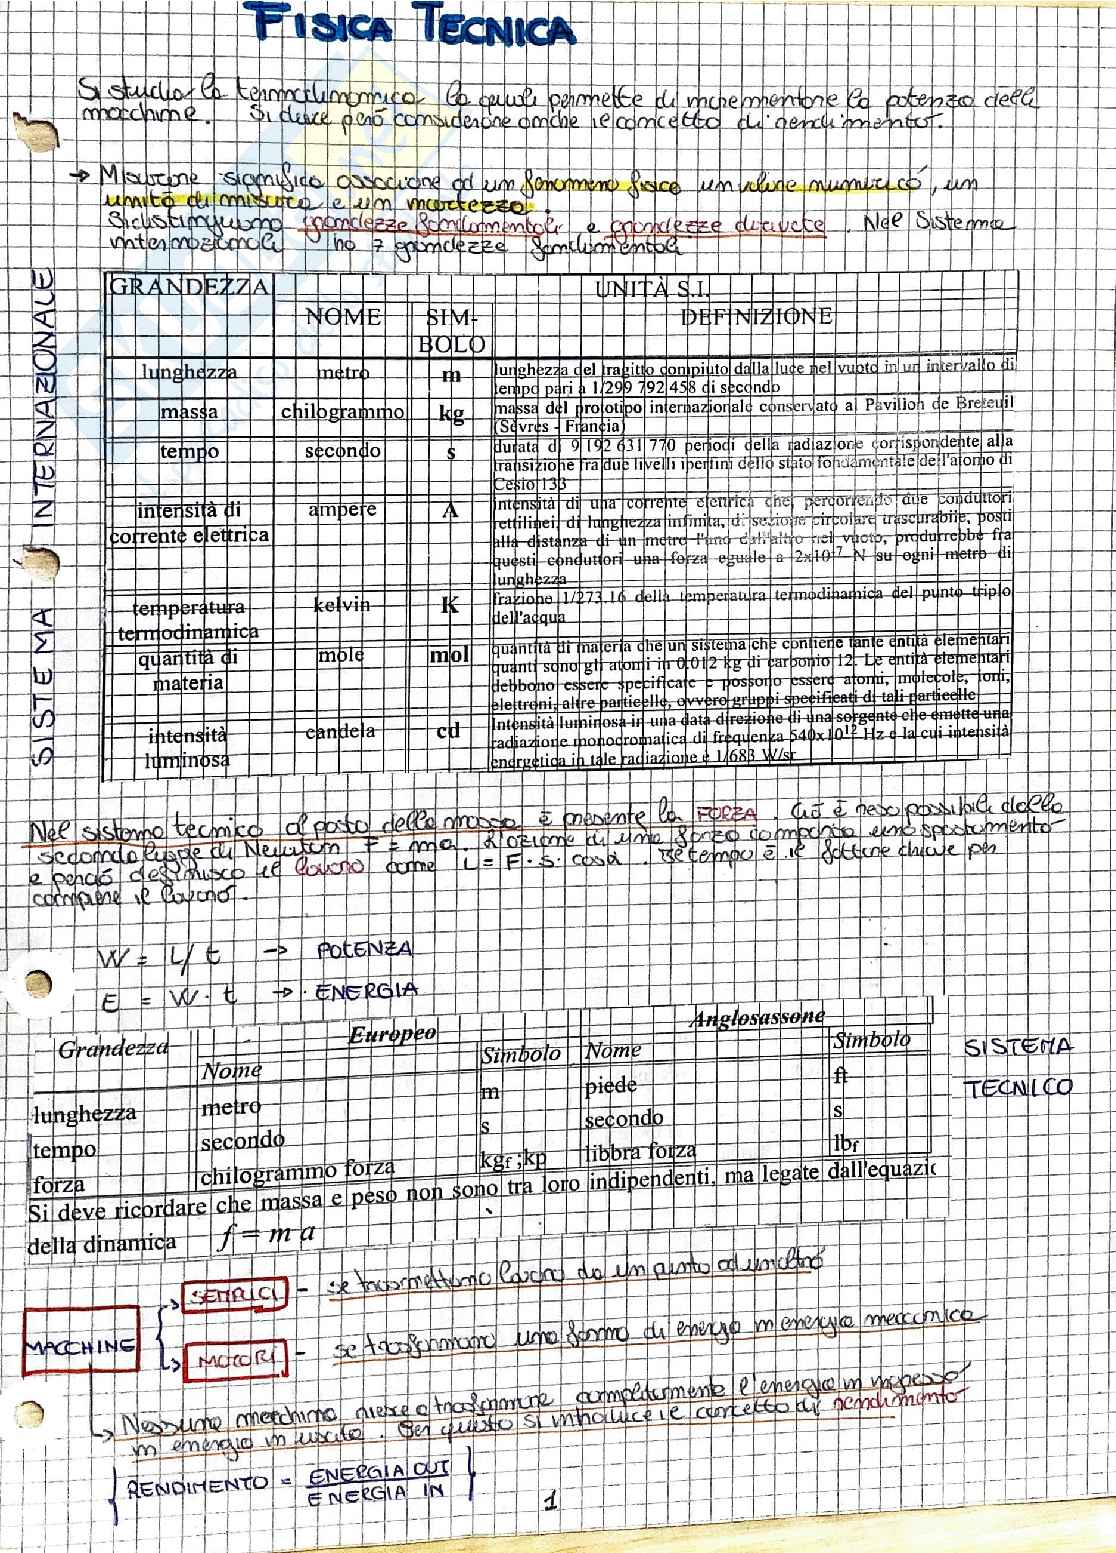 FISICA TECNICA
Si studia la termodinamica la quale permette di incrementare la potenza delle
macchine. Si deve però considerare anche il concetto di rendimento.
→ Misurare significa associare ad un fenomeno fisico un valore numerico, un
unità di misura e un
Si distinguono grandezze fondamentali e grandezze derivate. Nel Sistema
internazionale ho 7 grandezze fondamentali
SISTEMA INTERNAZIONALE
GRANDEZZA UNITÀ S.I.
NOME SIM- DEFINIZIONE
BOLO
lunghezza metro m lunghezza del tragitto compiuto dalla luce nel vuoto in un intervallo di
tempo pari a 1/299 792 458 di secondo
massa chilogrammo kg massa del prototipo internazionale conservato al Pavillon de Breteuil
(Sèvres - Francia)
tempo secondo s durata di 9 192 631 770 periodi della radiazione corrispondente alla
transizione fra due livelli iperfini dello stato fondamentale dell'atomo di
Cesio 133
intensità di ampere A Intensità di una corrente elettrica che, percorrendo due conduttori
corrente elettrica rettilinei, di lunghezza infinita, di sezione circolare trascurabile, posti
alla distanza di un metro l'uno dall'altro nel vuoto, produrrebbe fra
questi conduttori una forza eguale a 2x10⁻⁷ N su ogni metro di
lunghezza
temperatura kelvin K frazione 1/273.16 della temperatura termodinamica del punto triplo
termodinamica dell'acqua
quantità di mole mol quantità di materia che un sistema che contiene tante entità elementari
materia quanti sono gli atomi in 0.012 kg di carbonio 12. Le entità elementari
debbono essere specificate e possono essere atomi, molecole, ioni,
elettroni, altre particelle, ovvero gruppi specificati di tali particelle
intensità candela cd Intensità luminosa in una data direzione di una sorgente che emette una
luminosa radiazione monocromatica di frequenza 540x10¹² Hz e la cui intensità
energetica in tale radiazione è 1/683 W/sr
Nel sistema tecnico al posto della massa è presente la FORZA. Ciò è reso possibile dalla
seconda legge di Newton F = ma. L'azione di una forza comporta uno spostamento
e perciò definisco il lavoro come L = F · s · cosα. Il tempo è il fattore chiave per
compiere il lavoro.
W = L/t → POTENZA
E = W · t → ENERGIA
Europeo Anglosassone
Grandezza Nome Simbolo Nome Simbolo
lunghezza metro m piede ft
tempo secondo s secondo s
forza chilogrammo forza kgf ;kp libbra forza lbf
SISTEMA
TECNICO
Si deve ricordare che massa e peso non sono tra loro indipendenti, ma legate dall'equazic
della dinamica f = m a
MACCHINE
SEMPLICI - se trasmettono lavoro da un punto ad un altro
MOTORI - se trasformano una forma di energia in energia meccanica
Nessuna macchina riesce a trasformare completamente l'energia in ingresso
in energia in uscita. Per questo si introduce il concetto di rendimento
RENDIMENTO = ENERGIA OUT
ENERGIA IN
1